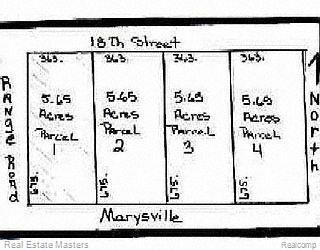 18Th Street
363. 363. 363. 363.
5.65 Acres Parcel 1
5.65 Acres Parcel 2
5.65 Acres Parcel 3
5.65 Acres Parcel 4
675. 675. 675. 675.
Range Road
North
Marysville
Real Estate Masters
Realcomp